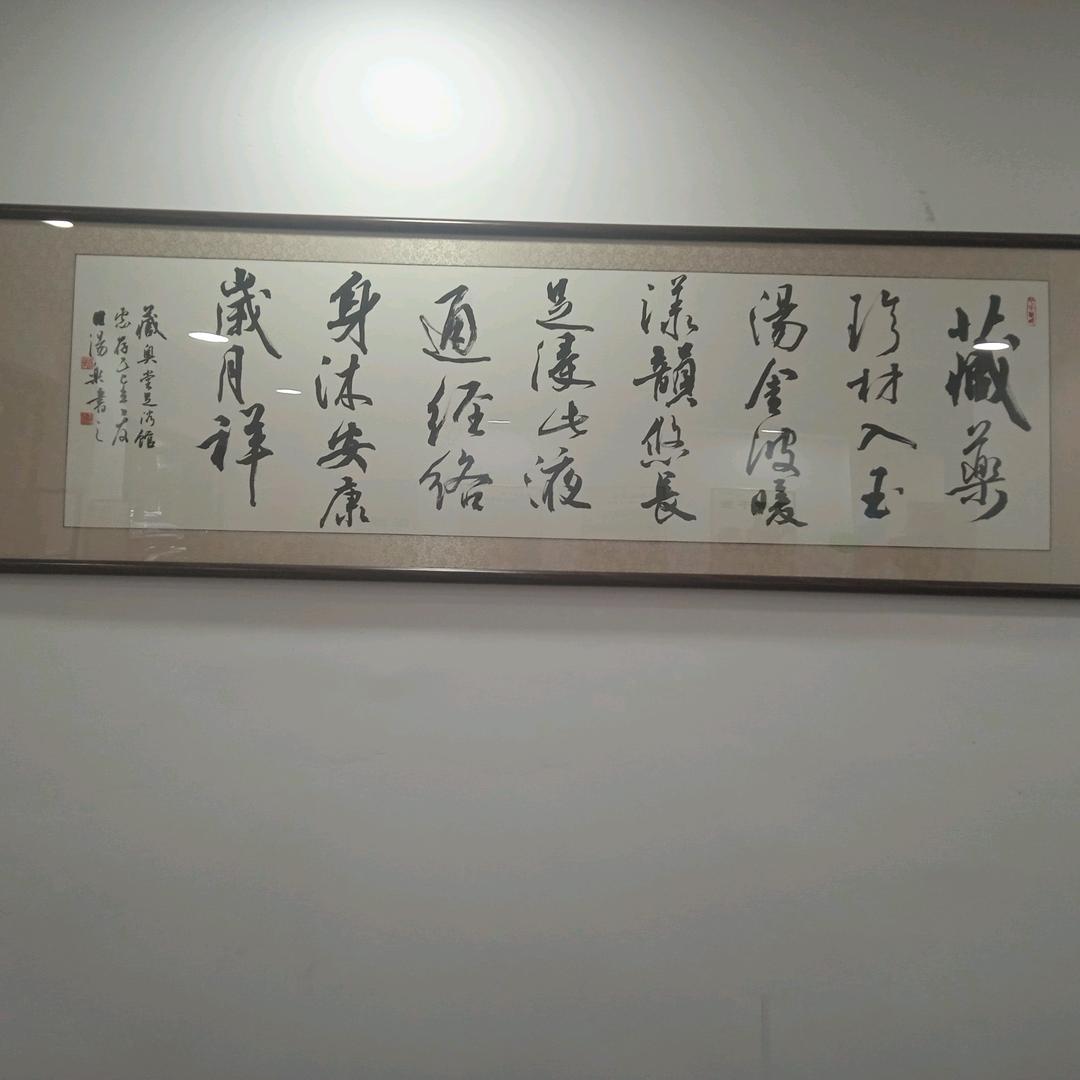 藏藥
珍材入玉
湯金波暖
漾韻悠長
足浸此液
通經络
身沐安康
歲月祥
藏奥堂足浴館
惠存乙巳立夏
日湯
書之